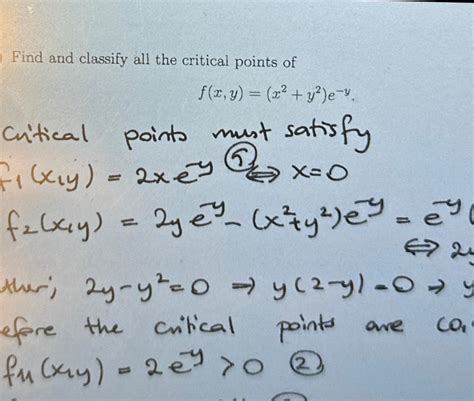 Find and classify all the critical points of
f(x, y) = (x² + y²)e⁻ʸ.
Critical points must satisfy
f₁(x,y) = 2xe⁻ʸ ① ⟺ x=0
f₂(x,y) = 2ye⁻ʸ - (x²+y²)e⁻ʸ = e⁻ʸ(
⟺ 2y
ther; 2y-y²=0 ⇒ y(2-y)=0 ⇒ y
efore the critical points are
f₁₁(x,y) = 2e⁻ʸ > 0 ②